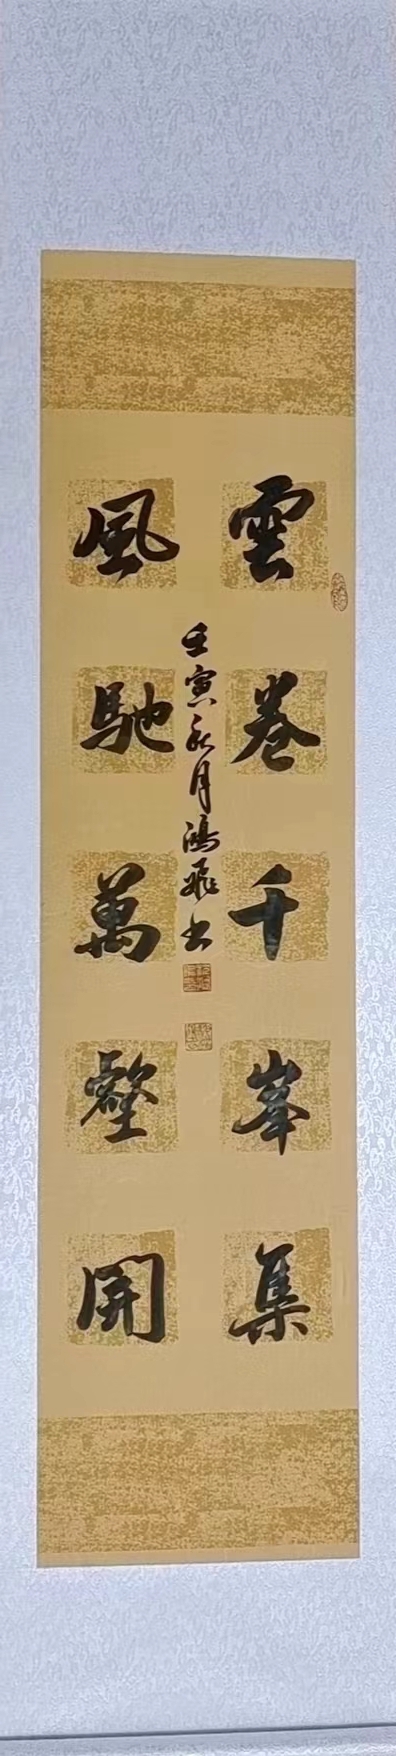 雲卷千峯集
風馳萬壑開
壬寅秋月鴻飛書